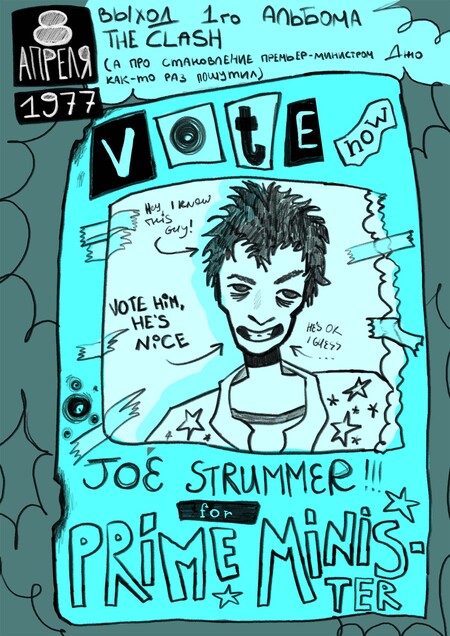 8
АПРЕЛЯ
1977
ВЫХОД 1го АЛЬБОМА
THE CLASH
(А ПРО СТАНОВЛЕНИЕ ПРЕМЬЕР-МИНИСТРОМ ДЖО
КАК-ТО РАЗ ПОШУТИЛ)
VOtE
now
Hey, I KNOW
THIS
GUY!
VOTE HIM,
HE'S
NiCE
HE'S OK
I GUESS
...
JOE STRUMMER!!!
for
PRiME MiNiS-
TER